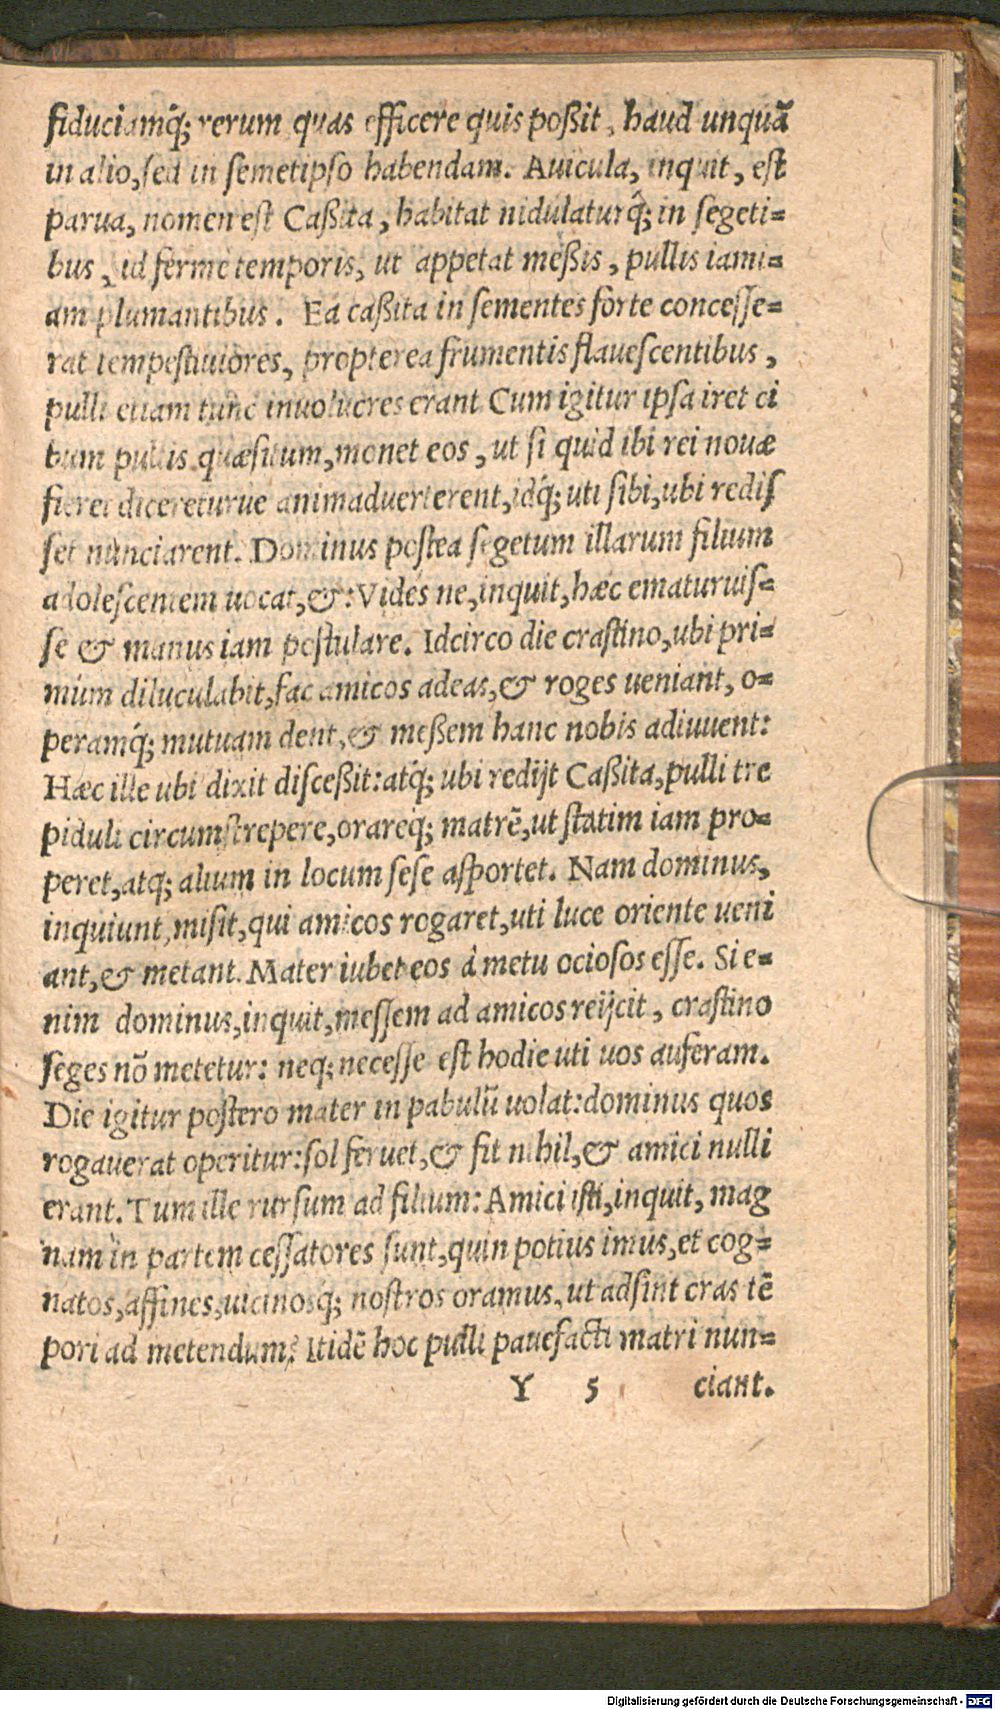 fiduciamq́; rerum quas efficere quis poßit, haud unquã
in alio, sed in semetipso habendam. Auicula, inquit, est
parua, nomen est Caßita, habitat nidulaturq́; in segeti=
bus, id ferme temporis, ut appetat meßis, pullis iami=
am plumantibus. Ea caßita in sementes forte concesse=
rat tempestiuiores, propterea frumentis flauescentibus,
pulli etiam tunc inuolucres erant Cum igitur ipsa iret ci
bum pullis quæsitum, monet eos, ut si quid ibi rei nouæ
fieret diceretuŕue animaduerterent, idq́; uti sibi, ubi redis
set nunciarent. Dominus postea segetum illarum filium
adolescentem uocat, &: Vides ne, inquit, hæc ematuruis=
se & manus iam postulare. Idcirco die crastino, ubi pri=
mùm diluculabit, fac amicos adeas, & roges ueniant, o=
peramq́; mutuam dent, & meßem hanc nobis adiuuent:
Hæc ille ubi dixit disceßit: atq́; ubi redijt Caßita, pulli tre
piduli circumstrepere, orareq́; matrẽ, ut statim iam pro=
peret, atq; alium in locum sese asportet. Nam dominus,
inquiunt, misit, qui amicos rogaret, uti luce oriente ueni
ant, & metant. Mater iubet eos à metu ociosos esse. Si e=
nim dominus, inquit, messem ad amicos reijcit, crastino
seges nõ metetur: neq; necesse est hodie uti uos auferam.
Die igitur postero mater in pabulũ uolat: dominus quos
rogauerat operitur: sol feruet, & fit nihil, & amici nulli
erant. Tum ille rursum ad filium: Amici isti, inquit, mag
nam in partem cessatores sunt, quin potius imus, et cog=
natos, affines, uicinosq́; nostros oramus, ut adsint cras tẽ
pori ad metendum? Itidẽ hoc pulli pauefacti matri nun=
Y 5 ciant.
Digitalisierung gefördert durch die Deutsche Forschungsgemeinschaft - DFG